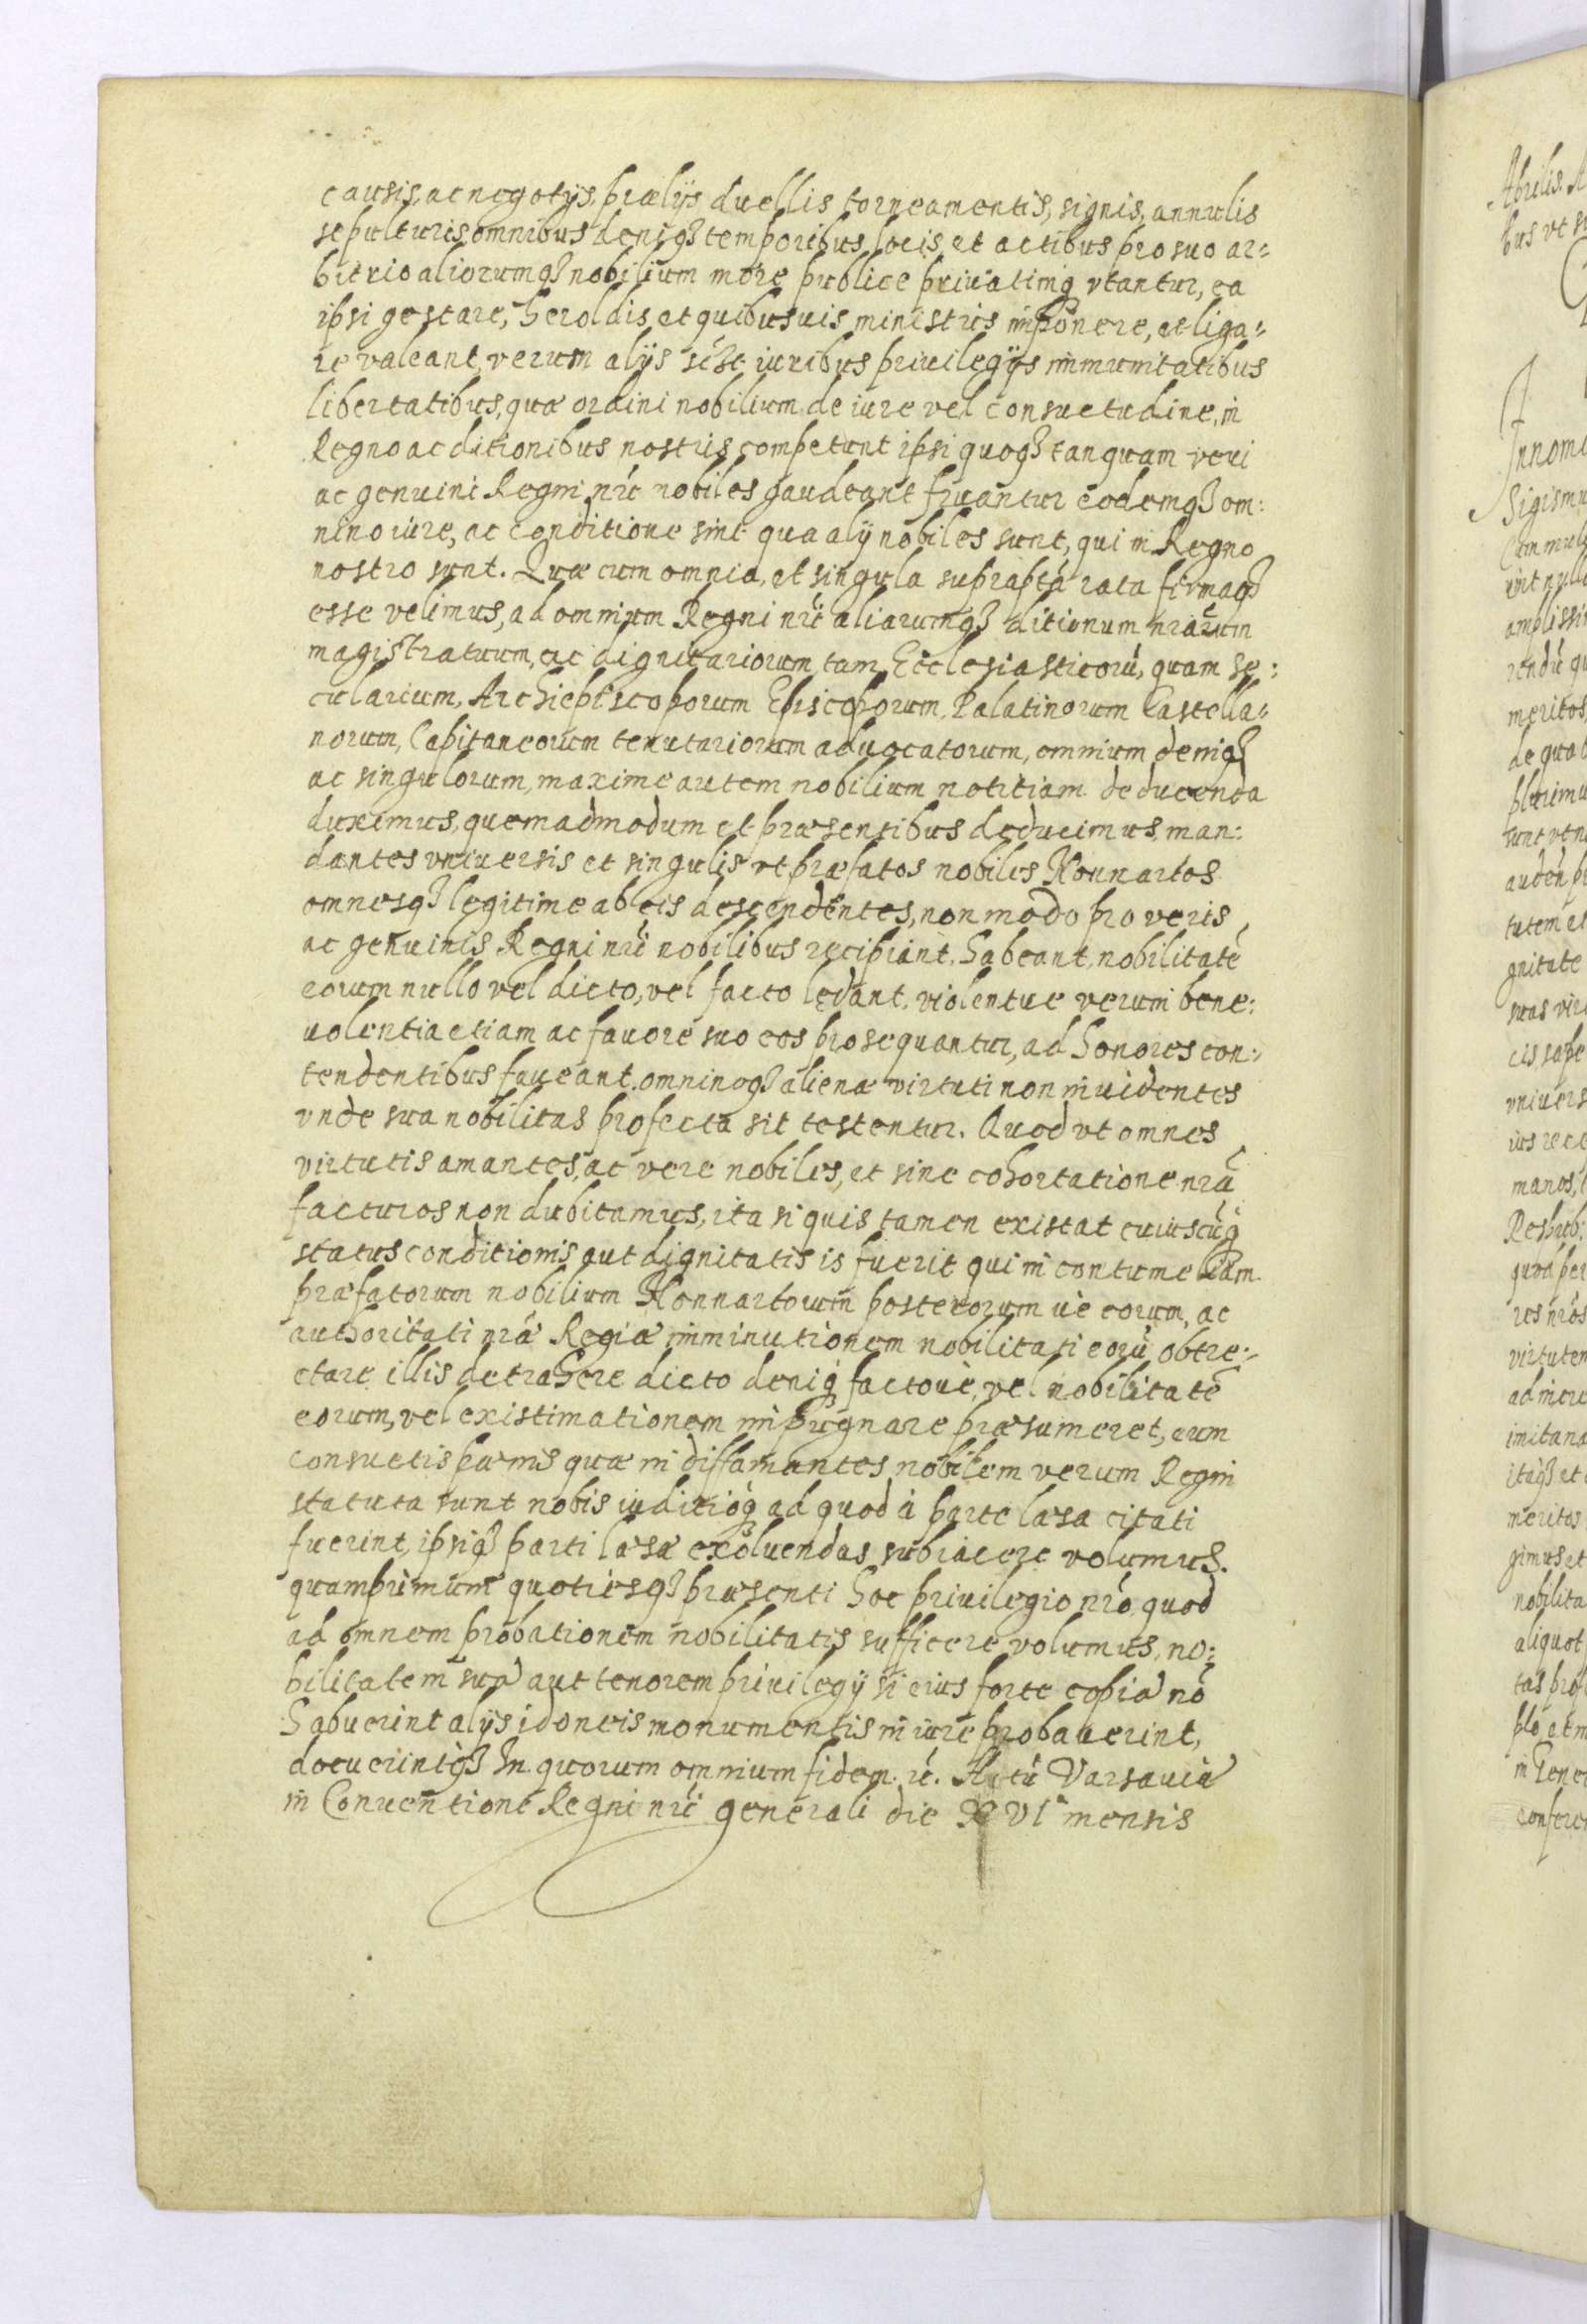 causis, ac negotijs, prælijs duellis torneamentis, signis, annulis
sepulturis, omnibus deniq3 temporibus, locis, et actibus pro suo ar=
bitrio aliorumq3 nobilium more publice priuatimq vtantur, ea
ipsi gestare, heroldis et quibusuis ministris imponere, et liga=
re valeant, verum alijs iuribus priuilegijs immunitatibus
libertatibus, quæ ordini nobilium de iure vel consuetudine, in
Regno ac ditionibus nostris competunt ipsi quoq3 tanquam veri
ac genuini Regni nri nobiles gaudeant fruantur eodemq3 om:
nino iure, ac conditione sint qua alij nobiles sunt, qui in Regno
nostro sunt. Quæ cum omnia, et singula suprapta rata firmaq3
esse velimus, ad omnium Regni nri aliarumq3 ditionum nrarum
magistratuum, ac dignitariorum tam Ecclesiasticorū, quam se:
cularium, Archiepiscoporum Episcoporum, Palatinorum Castella=
norum, Capitaneorum tenutariorum aduocatorum, omnium deniq3
ac singulorum, maxime autem nobilium notitiam deducenda
duximus, quemadmodum et præsentibus deducimus, man:
dantes vniuersis et singulis vt præfatos nobiles Konnartos
omnesq3 legitime ab eis descendentes, non modo pro veris
ac genuinis Regni nri nobilibus recipiant, habeant, nobilitatē
eorum nullo vel dicto, vel facto ledant, violentue verum bene:
uolentia etiam ac fauore suo eos prosequantur, ad honores con:
tendentibus faueant. omninoq3 alienæ virtuti non inuidentes
vnde sua nobilitas profecta sit testentur. Quod vt omnes
virtutis amantes, ac vere nobiles, et sine cohortatione nrā
facturos non dubitamus, ita si quis tamen existat cuiuscūq
status conditionis aut dignitatis is fuerit qui in contumeliam
præfatorum nobilium Konnartorum posterorum ue eorum, ac
authoritati nræ Regiæ imminutionem nobilitati eorū obtre:
ctare illis detrahere dicto deniq factoue, vel nobilitatē
eorum, vel existimationem impugnare præsumeret, eum
consuetis pænis quæ in diffamantes nobilem verum Regni
statuta sunt nobis iuditioq ad quod à parte læsa citati
fuerint, ipsiq3 parti læsæ exoluendas subiacere volumus.
quamprimum quotiesq3 præsenti hoc priuilegio nro, quod
ad omnem probationem nobilitatis sufficere volumus, no:
bilitatem suā aut tenorem priuilegij si eius forte copiā nō
habuerint alijs idoneis monumentis in iure probauerint,
docuerintq3 In quorum omnium fidem. Actū Varsauiæ
in Conuentione Regni nri generali die XVIª mensis